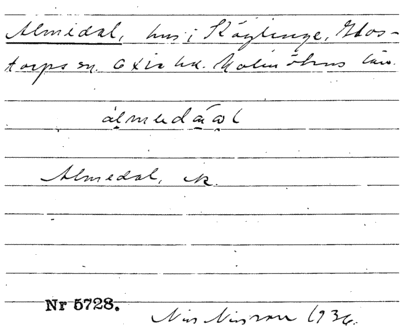 Almedal, hus i Käglinge, Glos-
torps sn. Oxie hd. Malmöhus län.
álmedàal
Almedal, N.
Nr 5728.
Nils Nilsson 1936.